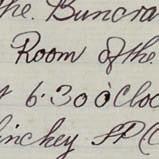 the Buncra
Room of the
6.30 o'Cloc
inchey J.P. (